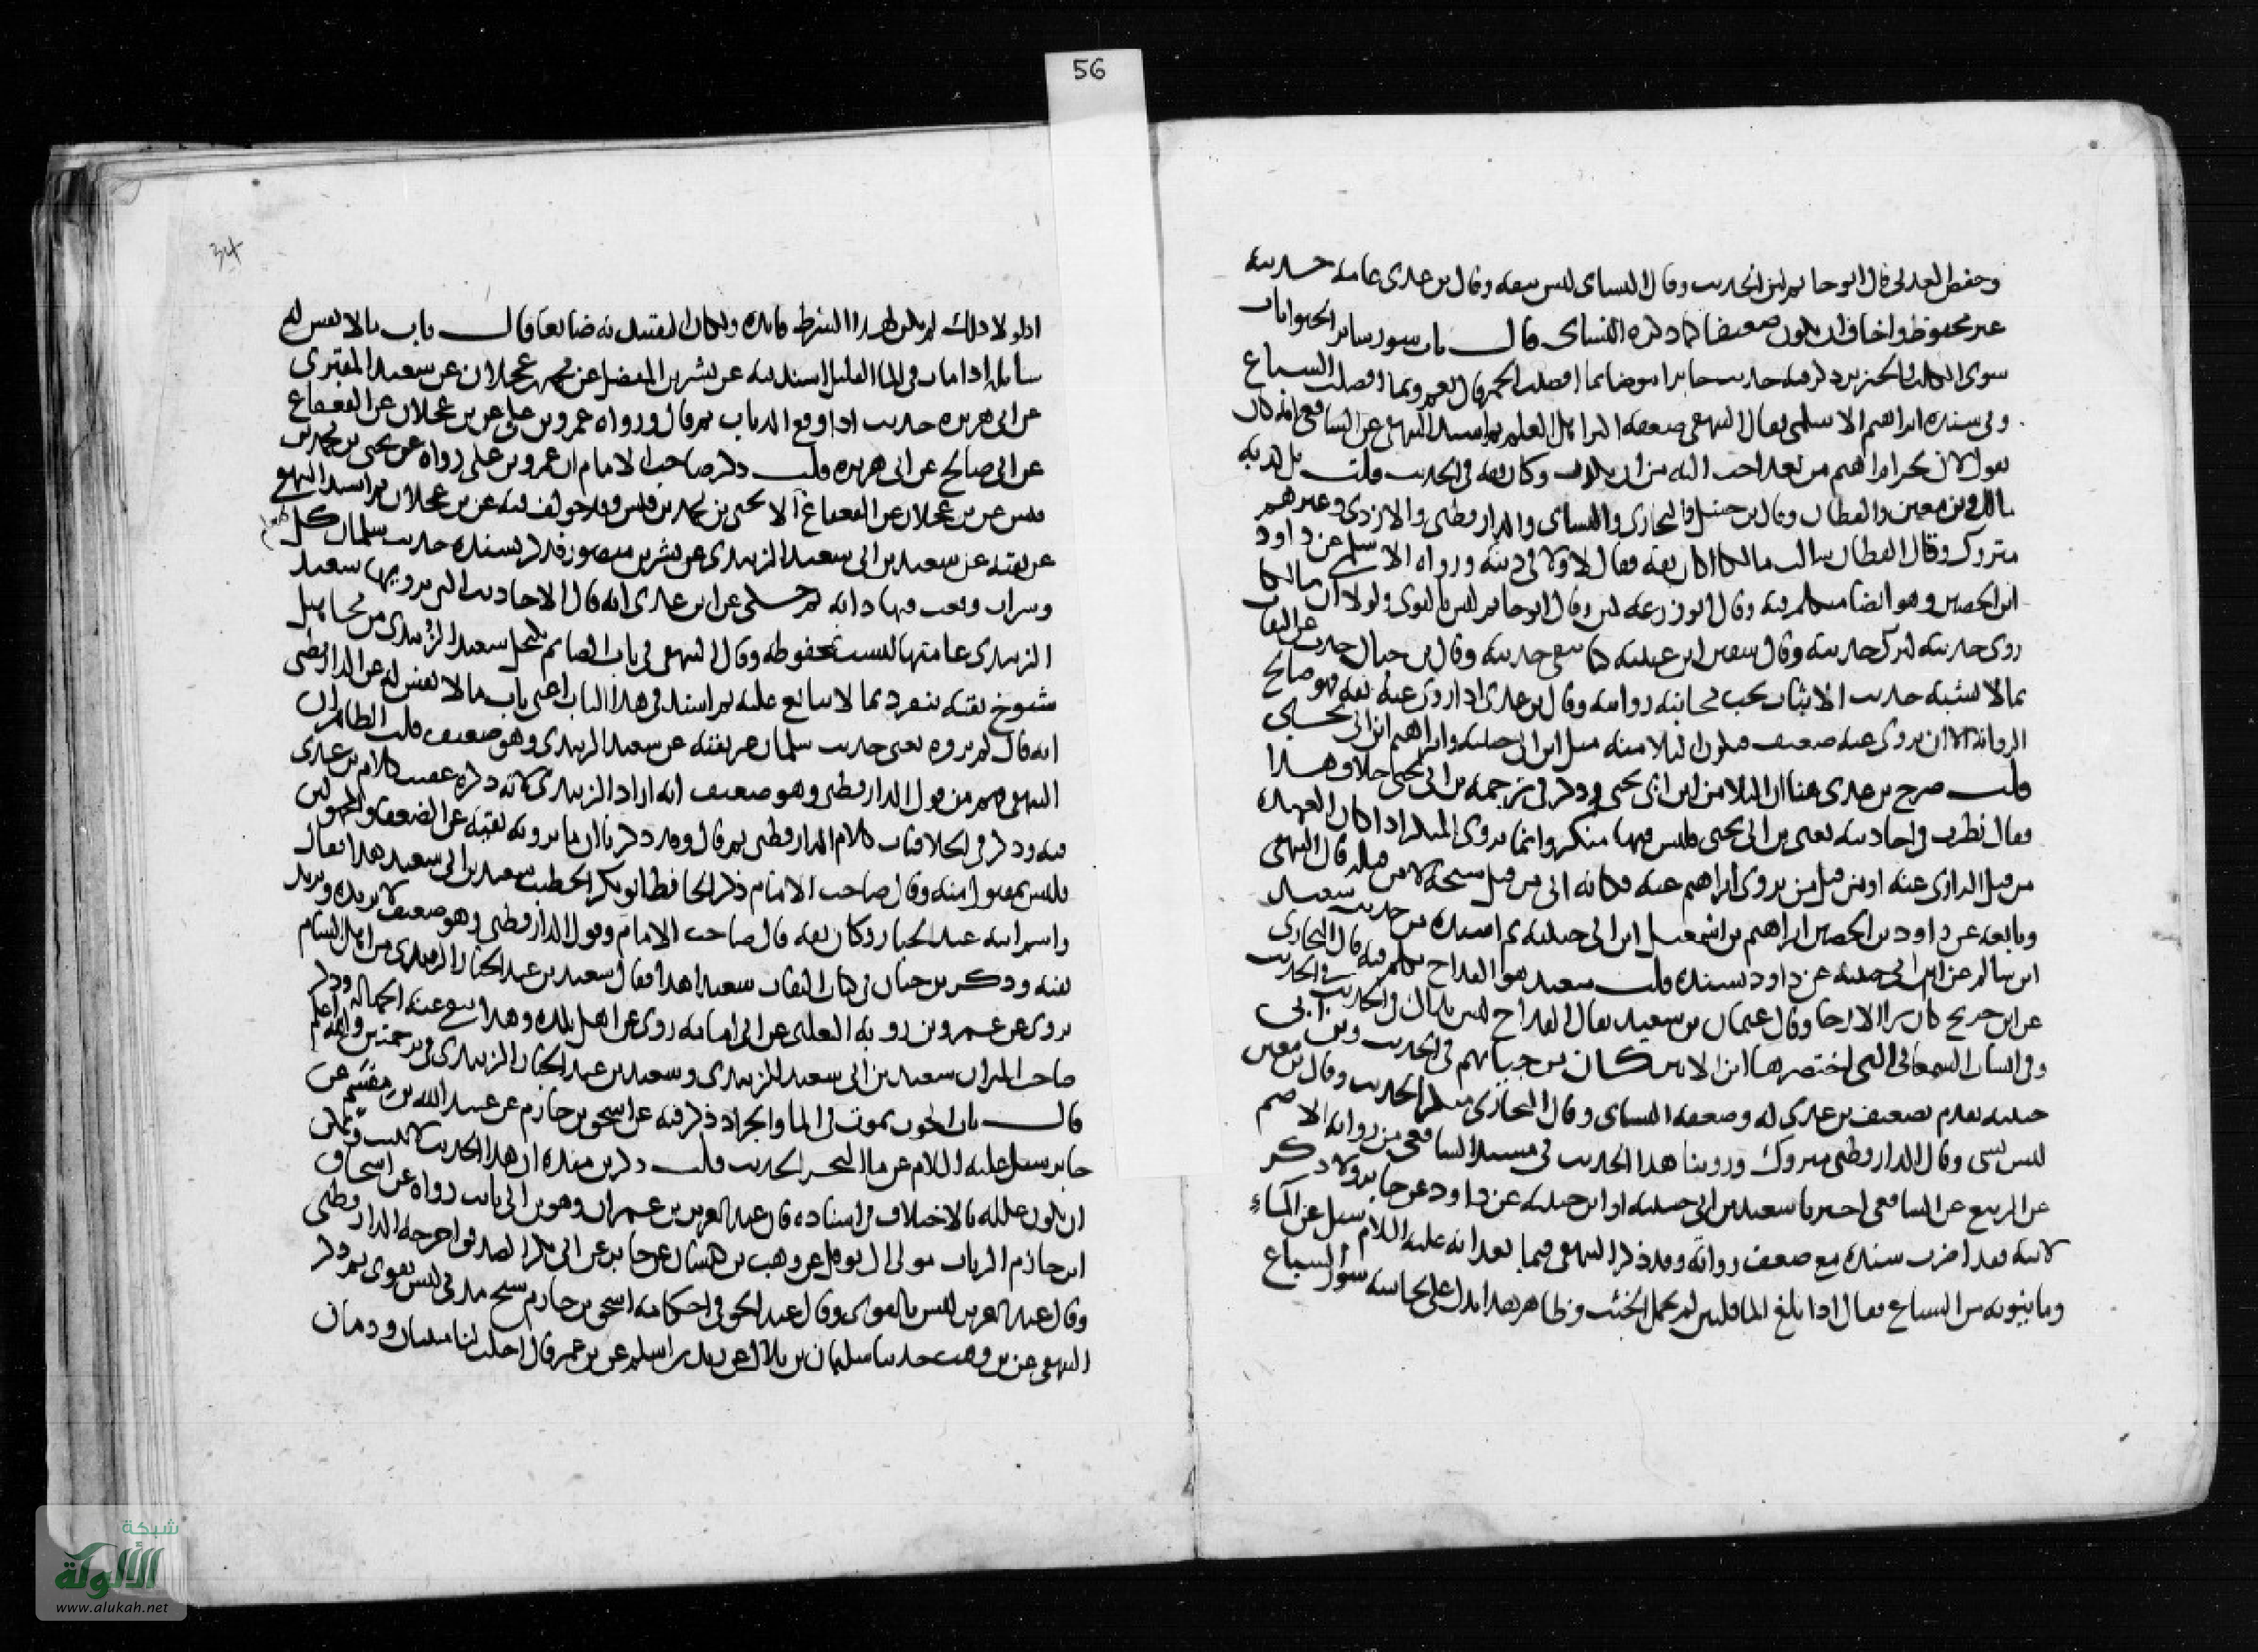 56
وحفص العدني قال ابو حاتم لين الحديث وقال النسائي ليس بثقة وقال بن عدي عامة حديثه
غير محفوظ واخاف ان يكون ضعيفا كما ذكره النسائي قال باب سور ساير الحيوانات
سوى الكلب والخنزير ذكر فيه حديث جابر انتوضا بما افضلت الحمر قال نعم وبما افضلت السباع
وفي سنده ابراهيم الاسلمي فقال البيهقي ضعفه اكثر اهل العلم ثم اسند البيهقي عن الشافعي انه كان
يقول لان يخر ابراهيم من بعد احب اليه من ان يكذب وكان ثقة في الحديث قلت بل كذبه
مالك وبن معين والقطان وقال بن حنبل والبخاري والنسائي والدارقطني والازدي وغيرهم
متروك وقال القطان سالت مالكا اكان ثقة فقال لا ولا في دينه ورواه الاسلمي عن داود
ابن الحصين وهو ايضا متكلم فيه وقال ابو زرعة لين وقال ابو حاتم ليس بالقوي ولولا ان مالكا
روى حديثه لترك حديثه وقال سفين ابن عيينة كنا نتقي حديثه وقال بن حبان حدث عن الثقات
بما لا يشبه حديث الاثبات يجب مجانبة روايته وقال بن عدي اذا روى عنه ثقة فهو صالح
الرواية الا ان يروى عنه ضعيف فيكون البلا منه مثل ابن ابي حبيبة وابراهيم ابن ابي يحيى
قلت صرح بن عدي هنا ان البلا من ابن ابي يحيى وذكر في ترجمة بن ابي يحيى خلاف هذا
فقال نظرت في احاديثه يعني بن ابي يحيى فليس فيها منكر وانما يروى المنكر اذا كان العهدة
من قبل الراوي عنه او من قبل من يروى ابراهيم عنه وكانه اتى من قبل شيخه لا من قبله قال البيهقي
وتابعه عن داود بن الحصين ابراهيم بن اسمعيل ابن ابي حبيبة ثم اسنده من حديث سعيد
ابن سالم عن ابن ابي حبيبة عن داود بسنده قلت سعيد هو القداح تكلم فيه قال البخاري
عن ابن جريج كان يرا الارجا وقال عثمان بن سعيد يقال القداح ليس بذاك في الحديث
وفي انساب السمعاني التي اختصرها ابن الاثير كان بن حبان يهم في الحديث وبن ابي
حبيبة تقدم تضعيف بن عدي له وضعفه النسائي وقال البخاري منكر الحديث وقال بن معين
ليس بشي وقال الدارقطني متروك وروينا هذا الحديث في مسند الشافعي من رواية الاصم
عن الربيع عن الشافعي اخبرنا سعيد بن ابي حبيبة او ابن حبيبة عن داود عن جابر ولا ذكر
لابيه فقد اضطرب سنده مع ضعف رواته وقد ذكر البيهقي فيما بعد انه عليه السلام سيل عن الماء
وما ينوبه من السباع فقال اذا بلغ الما قلتين لم يحمل الخبث وظاهر هذا يدل على نجاسة سور السباع
34
اذ لولا ذلك لم يكن لهذا الشرط فايدة ولكان التقييد به ضايعا قال باب ما لا نفس له
سايلة اذا مات في الما القليل اسند فيه عن بشر بن المفضل عن محمد بن عجلان عن سعيد المقبري
عن ابي هريرة حديث اذا وقع الذباب ثم قال ورواه عمرو بن علي عن بن عجلان عن القعقاع
عن ابي صالح عن ابي هريرة قلت ذكر صاحب الامام ان عمرو بن علي رواه عن يحيى بن محمد بن
قيس عن بن عجلان عن القعقاع الا يحيى بن محمد بن قيس وقد خولف فيه عن بن عجلان ثم اسند البيهقي
عن بقية عن سعيد بن ابي سعيد الزبيدي عن بشر بن منصور فذكر بسنده حديث سلمان كل طعام
وشراب وقعت فيها دابة ثم حكى عن ابن عدي انه قال الاحاديث التي يرويها سعيد
الزبيدي عامتها ليست بمحفوظة وقال البيهقي في باب الصايم يكتحل سعيد الزبيدي من مجاهيل
شيوخ بقية ينفرد بما لا يتابع عليه ثم اسند في هذا الباب اعني باب ما لا نفس له عن الدارقطني
انه قال لم يروه يعني حديث سلمان غير بقية عن سعيد الزبيدي وهو ضعيف قلت الظاهر ان
البيهقي فهم من قول الدارقطني وهو ضعيف انه اراد الزبيدي لانه ذكره عقيب كلام بن عدي
فيه وذكر في الخلافيات كلام الدارقطني ثم قال وقد ذكرنا ان ما يرويه بقية عن الضعفا والمجهولين
فليس بمقبول منه وقال صاحب الامام ذكر الحافظ ابو بكر الخطيب سعيد بن ابي سعيد هذا فقال
واسم ابيه عبد الجبار وكان ثقة قال صاحب الامام وقول الدارقطني وهو ضعيف لا يريده ويريد
بقية وذكر بن حبان في كتاب الثقات سعيدا هذا فقال سعيد بن عبد الجبار الزبيدي من اهل الشام
يروي عن عمرو بن روبة التغلبي عن ابي امامة روى عن اهل بلده وهذا يدفع عنه الجهالة وذكر
صاحب الميزان سعيد بن ابي سعيد الزبيدي وسعيد بن عبد الجبار الزبيدي في ترجمتين والله اعلم
قال باب الحوت يموت في الما والجراد ذكر فيه عن اسحق بن حازم عن عبيد الله بن مقسم عن
جابر سيل عليه السلام عن ما البحر الحديث قلت ذكر بن مندة ان هذا الحديث لا يثبت ويمكن
ان يكون علله بالاختلاف في اسناده فان عبد العزيز بن عمران وهو بن ابي ثابت رواه عن اسحاق
ابن حازم الزيات مولى ال نوفل عن وهب بن كيسان عن جابر عن ابي بكر الصديق اخرجه الدارقطني
وقال عبد العزيز ليس بالقوي وقال عبد الحق في احكامه اسحق بن حازم شيخ مدني ليس بقوي ثم ذكر
البيهقي عن بن وهب حدثنا سليمان بن بلال عن زيد بن اسلم عن بن عمر قال احلت لنا ميتتان ودمان
شبكة
الألوكة
www.alukah.net